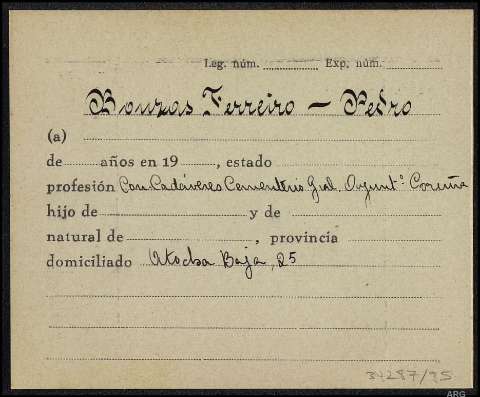 Leg. núm. Exp. núm.
Bouzas Ferreiro — Pedro
(a)
de años en 19, estado
profesión Con. Cadáveres Cementerio Gral. Ayuntº Coruña
hijo de y de
natural de , provincia
domiciliado Atocha Baja, 25
34287/95
ARG